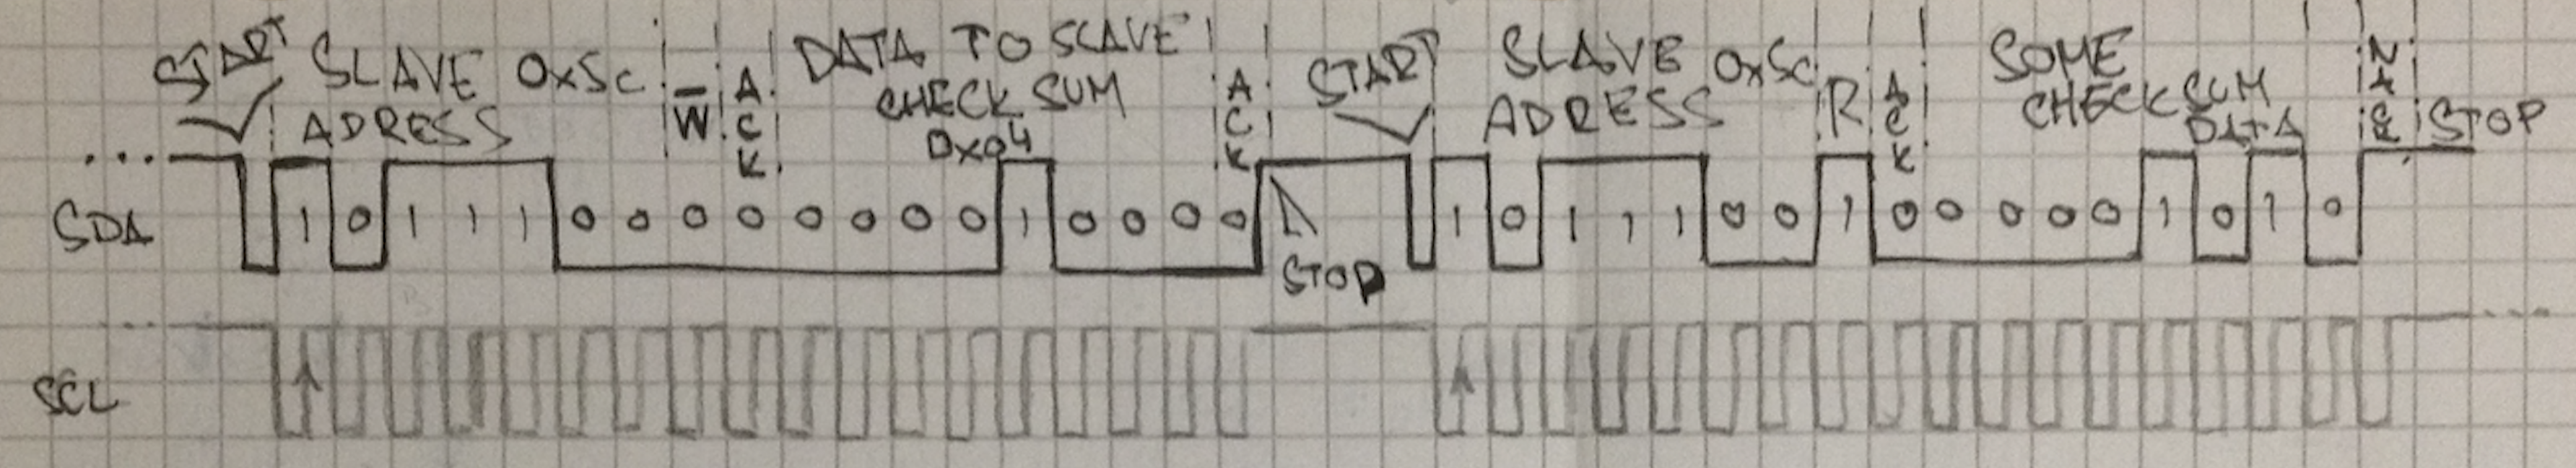 START SLAVE 0x5c
ADRESS
W
ACK
DATA TO SLAVE
CHECK SUM
0x04
ACK
START
SLAVE 0x5c
ADRESS
R
ACK
SOME
CHECK SUM
DATA
NACK
STOP
SDA 1 0 1 1 1 0 0 0 0 0 0 0 0 1 0 0 0 0
STOP
1 0 1 1 1 0 0 1 0 0 0 0 0 1 0 1 0
SCL